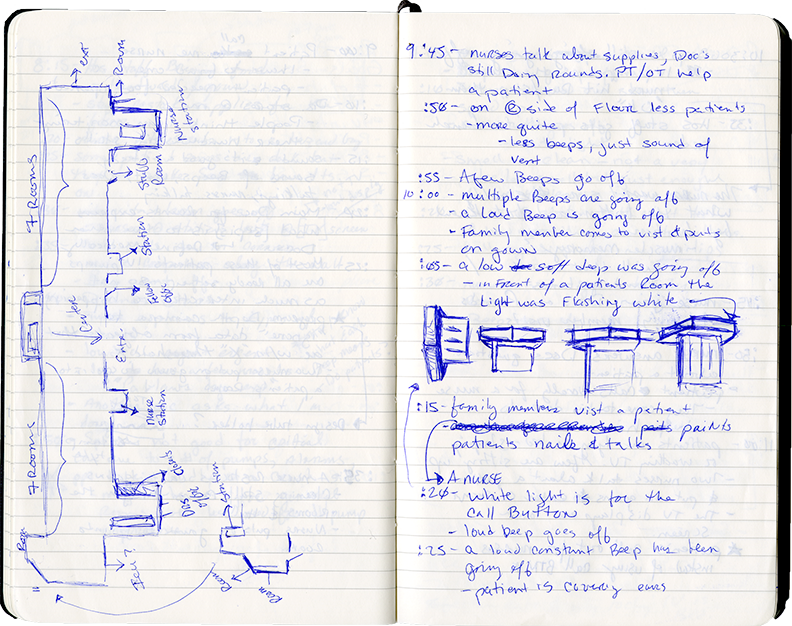 ext
Room
Nurse
Station
Staff
Room
7 Rooms
Station
Center
Entr.
7 Rooms
Nurse
Station
Doors
Station
Room
Icu?
Room
Room
9:45 - nurses talk about supplies, Doc's
still Doing Rounds. PT/OT help
a patient
:50 - on R side of Floor less patients
- more quite
- less beeps, just sound of
vent
:55 - A few Beeps go off
10:00 - multiple Beeps are going off
- a loud Beep is going off
- Family member comes to vist & puts
on gown
:05 - a low soft deep was going off
- in Front of a patients Room the
Light was Flashing white
:15 - family members vist a patient
paints
patients nails & talks
A NURSE
:20 - white light is for the
call Button
- loud beep goes off
:25 - a loud constant Beep has been
going off
- patient is covering ears